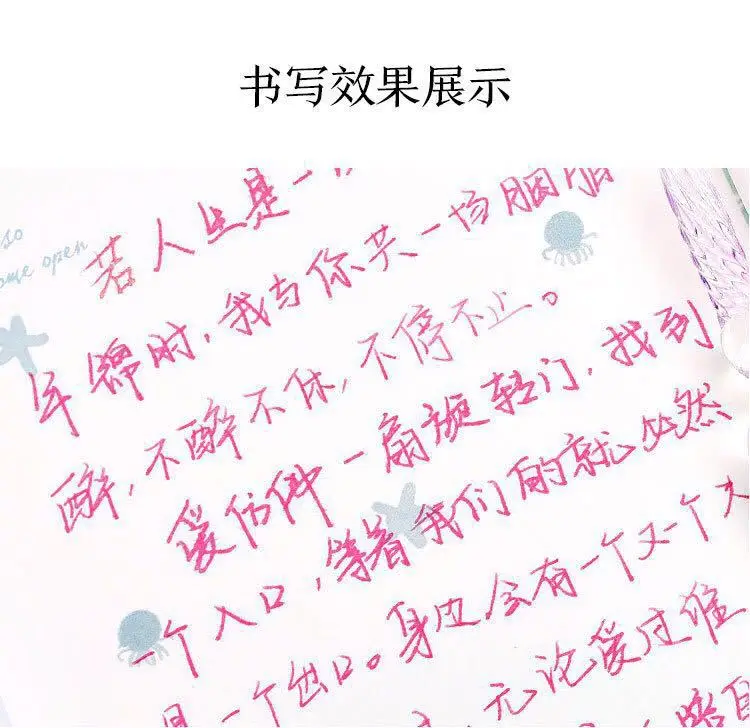 书写效果展示
若人生是一
年锦时，我与你共一场胭脂
醉，不醉不休，不停不止。
爱仿佛一扇旋转门，找到
一个入口，等着我们的就必然
是一个出口。身边会有一个又一个
无论爱过谁
open